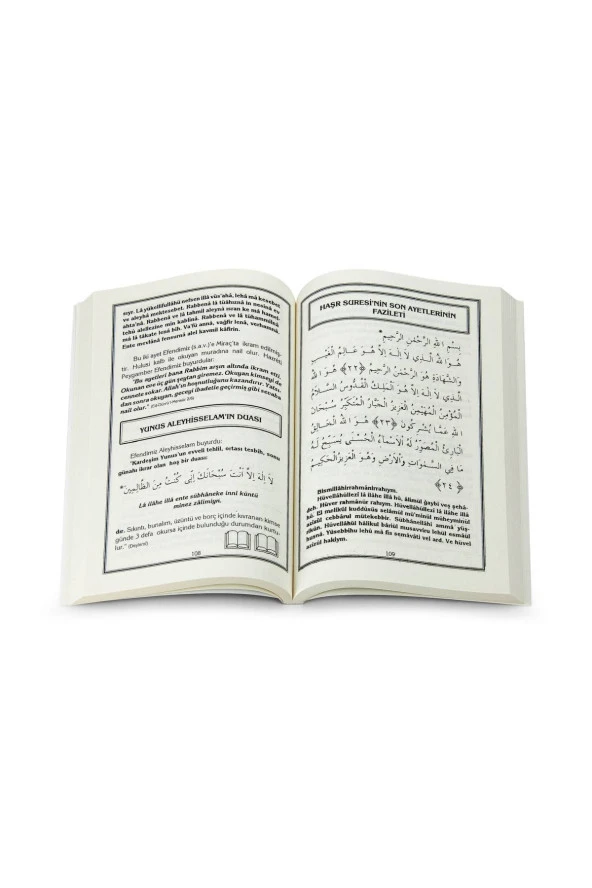 sıyr. Lâ yükellifullâhü nefsen illâ vüs'ahâ, lehâ mâ kesebet
ve aleyhâ mektesebet. Rabbenâ lâ tüâhıznâ in nesînâ ev
ahta'nâ. Rabbenâ ve lâ tahmil aleynâ ısran ke mâ hamel-
tehû alellezîne min kablinâ. Rabbenâ ve lâ tühammilnâ
mâ lâ tâkate lenâ bih. Va'fü anna, vağfir lenâ, verhamnâ,
Ente mevlânâ fensurnâ alel kavmil kâfirîn.
Bu iki ayet Efendimiz (s.a.v.)'e Miraç'ta ikram edilmiş-
tir. Hulusi kalb ile okuyan muradına nail olur. Hazreti
Peygamber Efendimiz buyurdular:
"Bu ayetleri bana Rabbim arşın altında ikram etti.
Okunan eve üç gün şeytan giremez. Okuyan kimseyi de
cennete sokar. Allah'ın hoşnutluğunu kazandırır. Yatsı-
dan sonra okuyan, geceyi ibadetle geçirmiş gibi sevaba
nail olur."
YUNUS ALEYHİSSELAM'IN DUASI
Efendimiz Aleyhisselam buyurdu:
"Kardeşim Yunus'un evveli tehlil, ortası tesbih, sonu
günahı ikrar olan hoş bir duası:
لَا اِلٰهَ اِلَّا اَنْتَ سُبْحَانَكَ اِنّ۪ي كُنْتُ مِنَ الظَّالِم۪ينَ*
Lâ ilâhe illâ ente sübhâneke innî küntü
minez zâlimîyn.
dır. Sıkıntı, bunalım, üzüntü ve borç içinde kıvranan kimse
günde 3 defa okursa içinde bulunduğu durumdan kurtu-
lur." (Deylemî)
108
HAŞR SURESİ'NİN SON AYETLERİNİN
FAZİLETİ
بِسْمِ اللّٰهِ الرَّحْمٰنِ الرَّح۪يمِ*
هُوَ اللّٰهُ الَّذ۪ي لَا اِلٰهَ اِلَّا هُوَ عَالِمُ الْغَيْبِ
وَالشَّهَادَةِ هُوَ الرَّحْمٰنُ الرَّح۪يمُ ﴿٢٢﴾ هُوَ اللّٰهُ
الَّذ۪ي لَا اِلٰهَ اِلَّا هُوَ الْمَلِكُ الْقُدُّوسُ السَّلَامُ
الْمُؤْمِنُ الْمُهَيْمِنُ الْعَز۪يزُ الْجَبَّارُ الْمُتَكَبِّرُ سُبْحَانَ
اللّٰهِ عَمَّا يُشْرِكُونَ ﴿٢٣﴾ هُوَ اللّٰهُ الْخَالِقُ
الْبَارِئُ الْمُصَوِّرُ لَهُ الْاَسْمَاءُ الْحُسْنٰى يُسَبِّحُ لَهُ
مَا فِي السَّمٰوَاتِ وَالْاَرْضِ وَهُوَ الْعَز۪يزُ الْحَك۪يمُ
﴿٢٤﴾
Bismillâhirrahmânirrahıym.
Hüvellâhüllezî lâ ilâhe illâ hû, âlimül ğaybi veş şehâ-
deh. Hüver rahmânür rahıym. Hüvellâhüllezî lâ ilâhe illâ
hû. El melikül kuddûsüs selâmül mü'minül müheyminül
azîzül cebbârul mütekebbir. Sübhânellâhi ammâ yüş-
rikûn. Hüvellâhül hâlikul bâriül musavviru lehül esmâül
husnâ. Yüsebbihu lehû mâ fis semâvâti vel ard. Ve hüvel
azîzül hakîym.
109